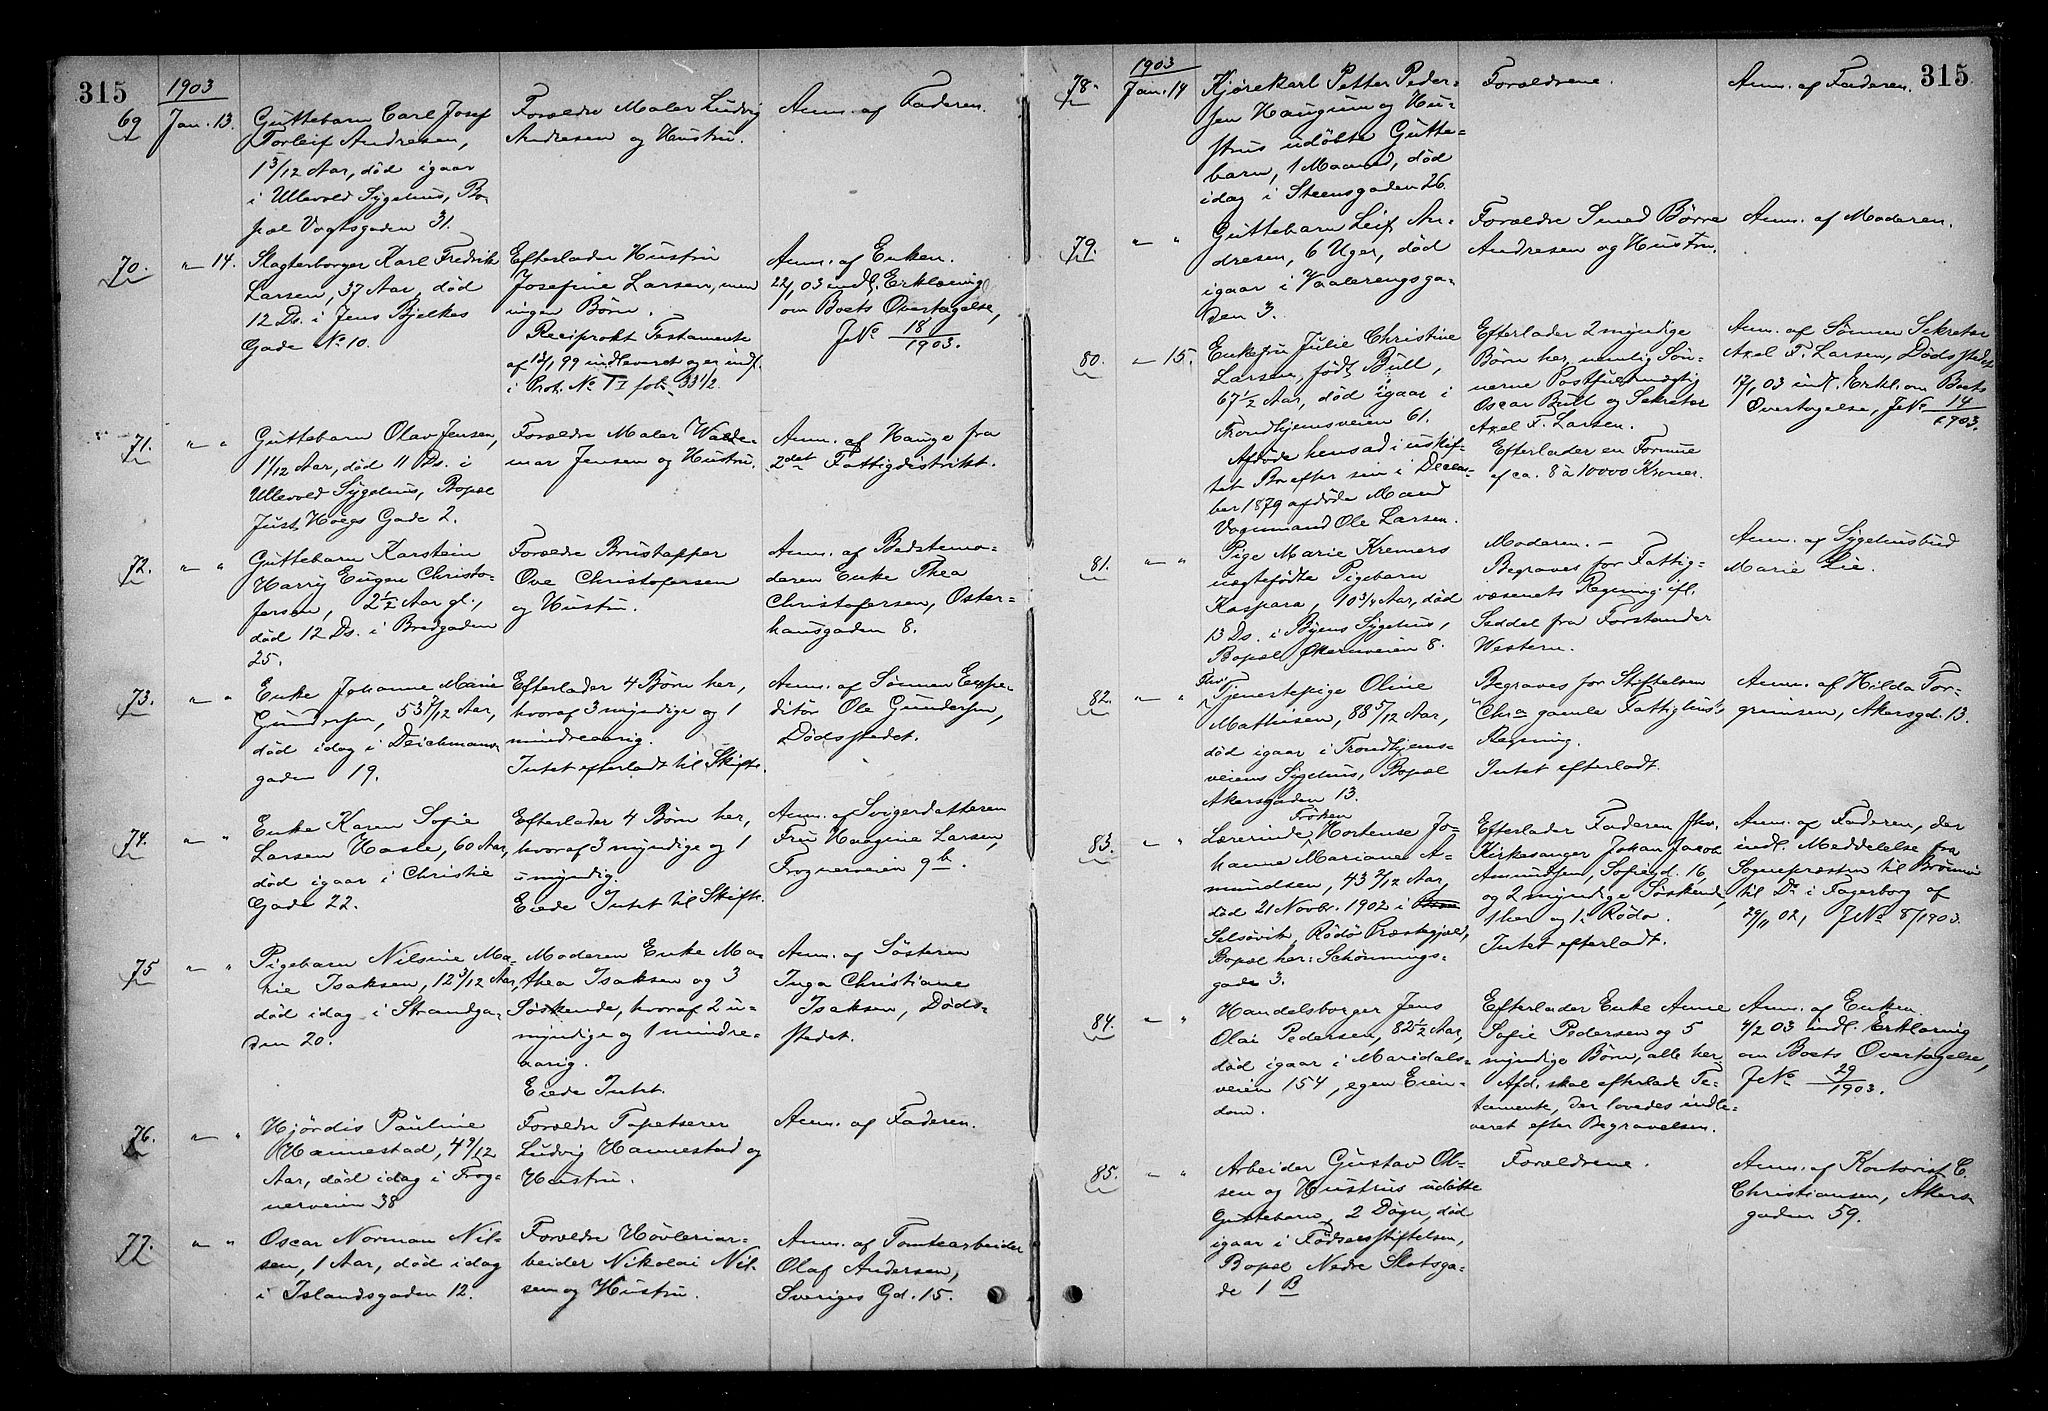 315
1903
69
Jan. 13.
Guttebarn Carl Josef
Torleif Andresen,
1 3/12 Aar, død igaar
i Ullevold Sygehus, Bo-
pæl Vogtsgaden 31.
Forældre Maler Ludvig
Andresen og Hustru.
Anm. af Faderen.
70.
" 14.
Slagterborger Karl Fredrik
Larsen, 37 Aar, død
12 Ds. i Jens Bjelkes
Gade No 10.
Efterlader Hustru
Josefine Larsen, men
ingen Børn.
Reciprokt Testamente
af 99 indleveret og er indf.
i Prot. No fol. 33 1/2.
Anm. af Enken.
22/1 03 indl. Erklæring
om Boets Overtagelse,
JNo 18/1903.
71.
" "
Guttebarn Olav Jensen,
11/12 Aar, død 11 Ds. i
Ullevold Sygehus, Bopæl
Just Høegs Gade 2.
Forældre Maler Walde-
mar Jensen og Hustru.
Anm. af Hauge fra
2det Fattigdistrikt.
72.
" "
Guttebarn Karstein
Harry Eugen Christo-
fersen, 2 1/2 Aar gl.,
død 12 Ds. i Bredgaden
25.
Forældre Brustapper
Ove Christofersen
og Hustru.
Anm. af Bedstemo-
deren Enke Thea
Christofersen, Oster-
hausgaden 8.
73.
" "
Enke Johanne Marie
Gundersen, 53 7/12 Aar,
død idag i Deichmans-
gaden 19.
Efterlader 4 Børn her,
hvoraf 3 myndige og 1
mindreaarig.
Intet efterladt til Skifte.
Anm. af Sønnen Expe-
ditør Ole Gundersen,
Dødsstedet.
74.
" "
Enke Karen Sofie
Larsen Hasle, 60 Aar,
død igaar i Christie
Gade 22.
Efterlader 4 Børn her,
hvoraf 3 myndige og 1
umyndig.
Eiede Intet til Skifte.
Anm. af Svigerdatteren
Fru Haagine Larsen,
Frognerveien 9b.
75
" "
Pigebarn Nilsine Ma-
rie Isaksen, 12 3/12 Aar,
død idag i Strandga-
den 20.
Moderen Enke Ma-
thea Isaksen og 3
Søskende, hvoraf 2 u-
myndige og 1 mindre-
aarig.
Eiede Intet.
Anm. af Søsteren
Inga Christiane
Isaksen, Døds-
stedet.
76.
" "
Hjørdis Pauline
Hannestad, 4 9/12
Aar, død idag i Frog-
nerveien 38
Forældre Tapetserer
Ludvig Hannestad og
Hustru.
Anm. af Faderen.
77.
" "
Oscar Norman Nil-
sen, 1 Aar, død idag
i Islandsgaden 12.
Forældre Høvleriar-
beider Nikolai Nil-
sen og Hustru.
Anm. af Tomtearbeider
Olaf Andersen,
Sveriges Gd. 15.
315
1903
78.
Jan. 14
Kjørekarl Petter Peder-
sen Haugum og Hu-
strus udøbte Gutte-
barn, 1 Maaned, død
idag i Steensgaden 26.
Forældrene.
Anm. af Faderen.
79.
" "
Guttebarn Leif An-
dresen, 6 Uger, død
igaar i Vaalerengsga-
den 3.
Forældre Smed Børre
Andresen og Hustru.
Anm. af Moderen.
80.
" 15.
Enkefru Julie Christine
Larsen, født Bull,
67 1/2 Aar, død igaar i
Trondhjemsveien 61.
Afdøde hensad i uskif-
tet Bo efter sin i Decem-
ber 1879 afdøde Mand
Vognmand Ole Larsen.
Efterlader 2 myndige
Børn her, nemlig Søn-
nerne Postfuldmægtig
Oscar Bull og Sekretær
Axel F. Larsen.
Efterlader en Formue
af ca. 8 à 10000 Kroner.
Anm. af Sønnen Sekretær
Axel F. Larsen, Dødsstedet.
17/1 03 indl. Erkl. om Boets
Overtagelse, JNo 14/1903.
81.
" "
Pige Marie Kremers
uægtefødte Pigebarn
Kaspara, 10 3/4 Aar, død
13 Ds. i Byens Sygehus,
Bopæl Økernveien 8.
Moderen. –
Begraves for Fattig-
væsenets Regning ifl.
Seddel fra Forstander
Western.
Anm. af Sygehusbud
Marie Lie.
82.
" "
Fhv.
Tjenestepige Oline
Mathisen, 88 5/12 Aar,
død igaar i Trondhjems-
veiens Sygehus, Bopæl
Akersgaden 13.
Begraves for Stiftelsen
"Chra gamle Fattighus's"
Regning.
Intet efterladt.
Anm. af Hilda Tor-
grimsen, Akersgd. 13.
83.
" "
Frøken
Lærerinde Hortense Jo-
hanne Mariane A-
mundsen, 43 2/12 Aar,
død 21 Novbr. 1902 i
Selsøvik, Rødø Præstegjæld,
Bopæl her: Schønnings-
gade 3.
Efterlader Faderen fhv.
Kirkesanger Johan Jacob
Amundsen, Sofiegd. 16,
og 2 myndige Søskende,
1 her og 1 i Rødø.
Intet efterladt.
Anm. af Faderen, der
indl. Meddelelse fra
Sognepræsten til
til Do i Fagerborg af
29/11 02, JNo 8/1903.
84.
" "
Handelsborger Jens
Olai Pedersen, 82 1/2 Aar,
død igaar i Maridals-
veien 154, egen Eien-
dom.
Efterlader Enke Anne
Sofie Pedersen og 5
myndige Børn, alle her.
Afd. skal efterlade Te-
stamente, der lovedes indle-
veret efter Begravelsen.
Anm. af Enken.
4/2 03 indl. Erklæring
om Boets Overtagelse,
JNo 29/1903.
85.
" "
Arbeider Gustav Ol-
sen og Hustrus udøbte
Guttebarn, 2 Døgn, død
igaar i Fødselsstiftelsen,
Bopæl Nedre Slotsga-
de 1 B
Forældrene.
Anm. af Kontorist C.
Christiansen, Akers-
gaden 59.